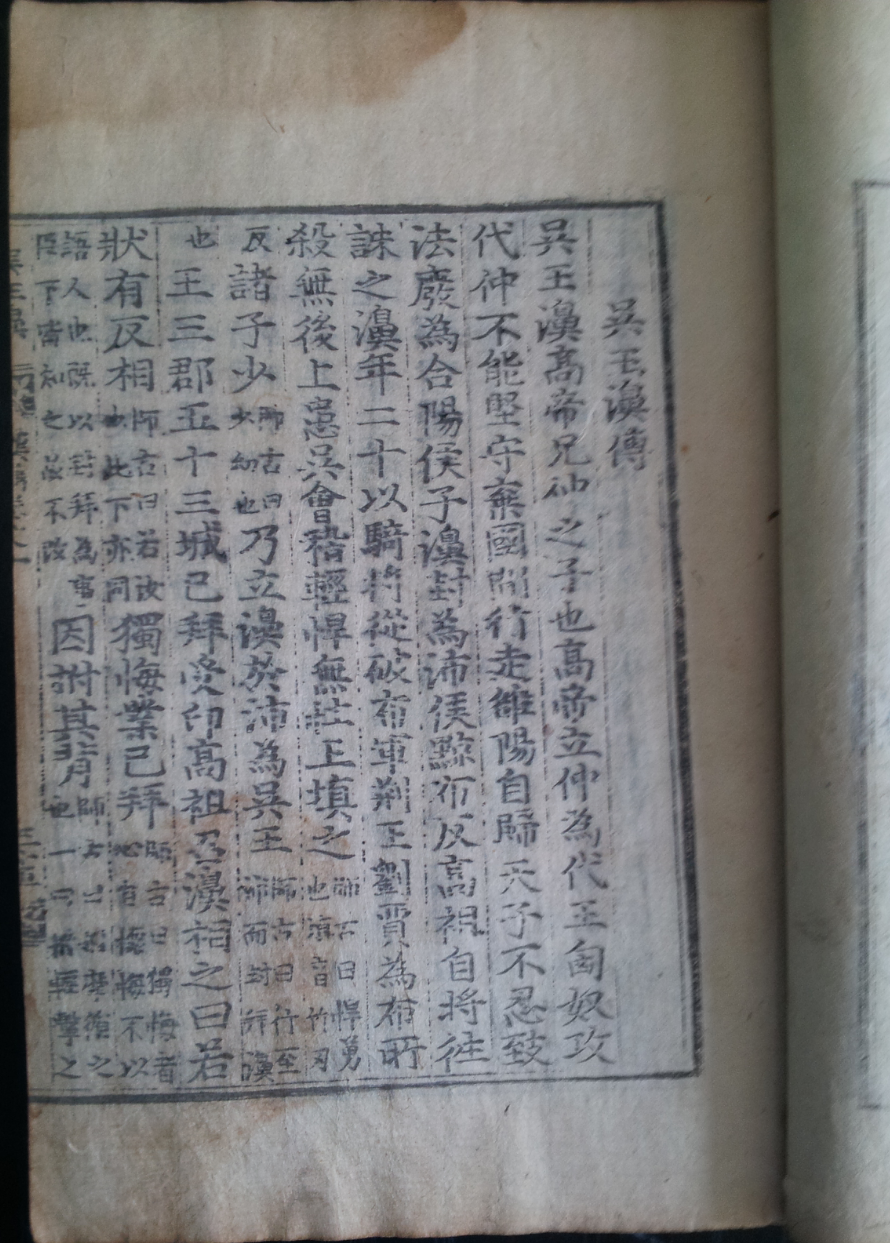 吳王濞傳
吳王濞高帝兄仲之子也高帝立仲為代王匈奴攻
代仲不能堅守棄國間行走雒陽自歸天子不忍致
法廢為合陽侯子濞封為沛侯黥布反高祖自將往
誅之濞年二十以騎將從破布軍荊王劉賈為布所
殺無後上患吳會稽輕悍無壯王填之師古曰悍勇也填音竹刃
反諸子少師古曰少幼也乃立濞於沛為吳王師古曰行至沛而封拜濞
也王三郡五十三城已拜受印高祖召濞相之曰若
狀有反相師古曰若汝也此下亦同獨悔業已拜師古曰獨悔者心自懷悔不以
語人也既以封拜為事臣下皆知之故不改因拊其背師古曰拊摩循之也一曰拊輕擊之